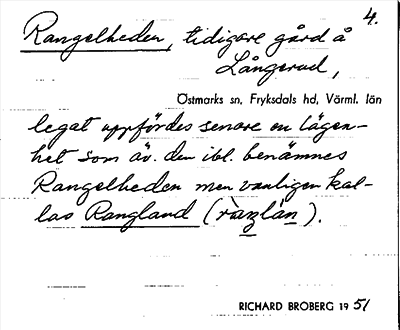 4.
Rangelheden, tidigare gård å
Långerud,
Östmarks sn, Fryksdals hd, Värml. län
legat uppfördes senare en lägen-
het som äv. den ibl. benämnes
Rangelheden men vanligen kal-
las Rangland (
RICHARD BROBERG 19 51